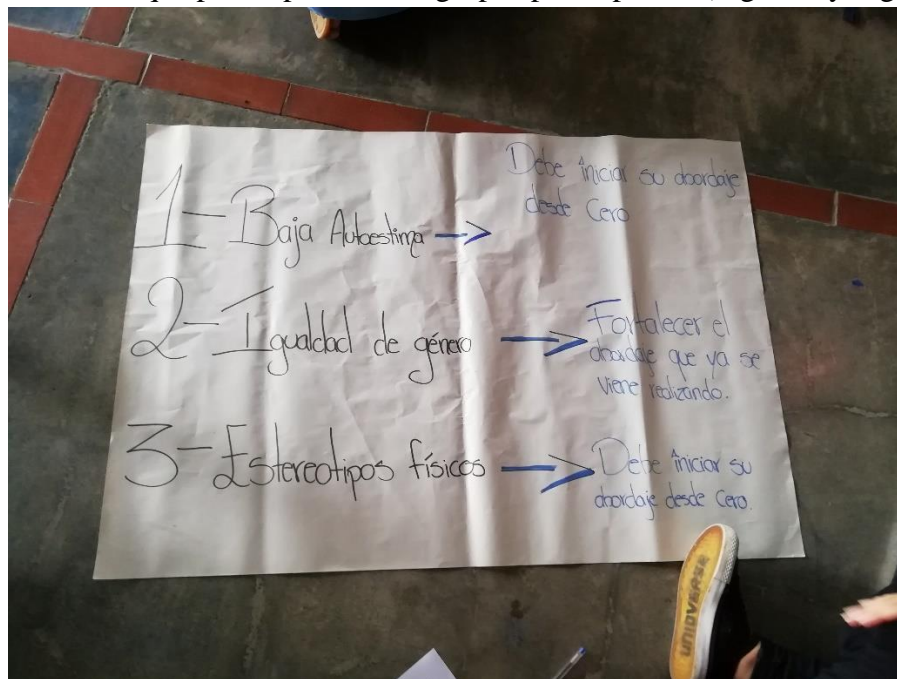 1- Baja Autoestima →
Debe iniciar su abordaje
desde Cero
2- Igualdad de género →
Fortalecer el
abordaje que ya se
viene realizando.
3- Estereotipos físicos →
Debe iniciar su
abordaje desde Cero.
UNIOVERSE